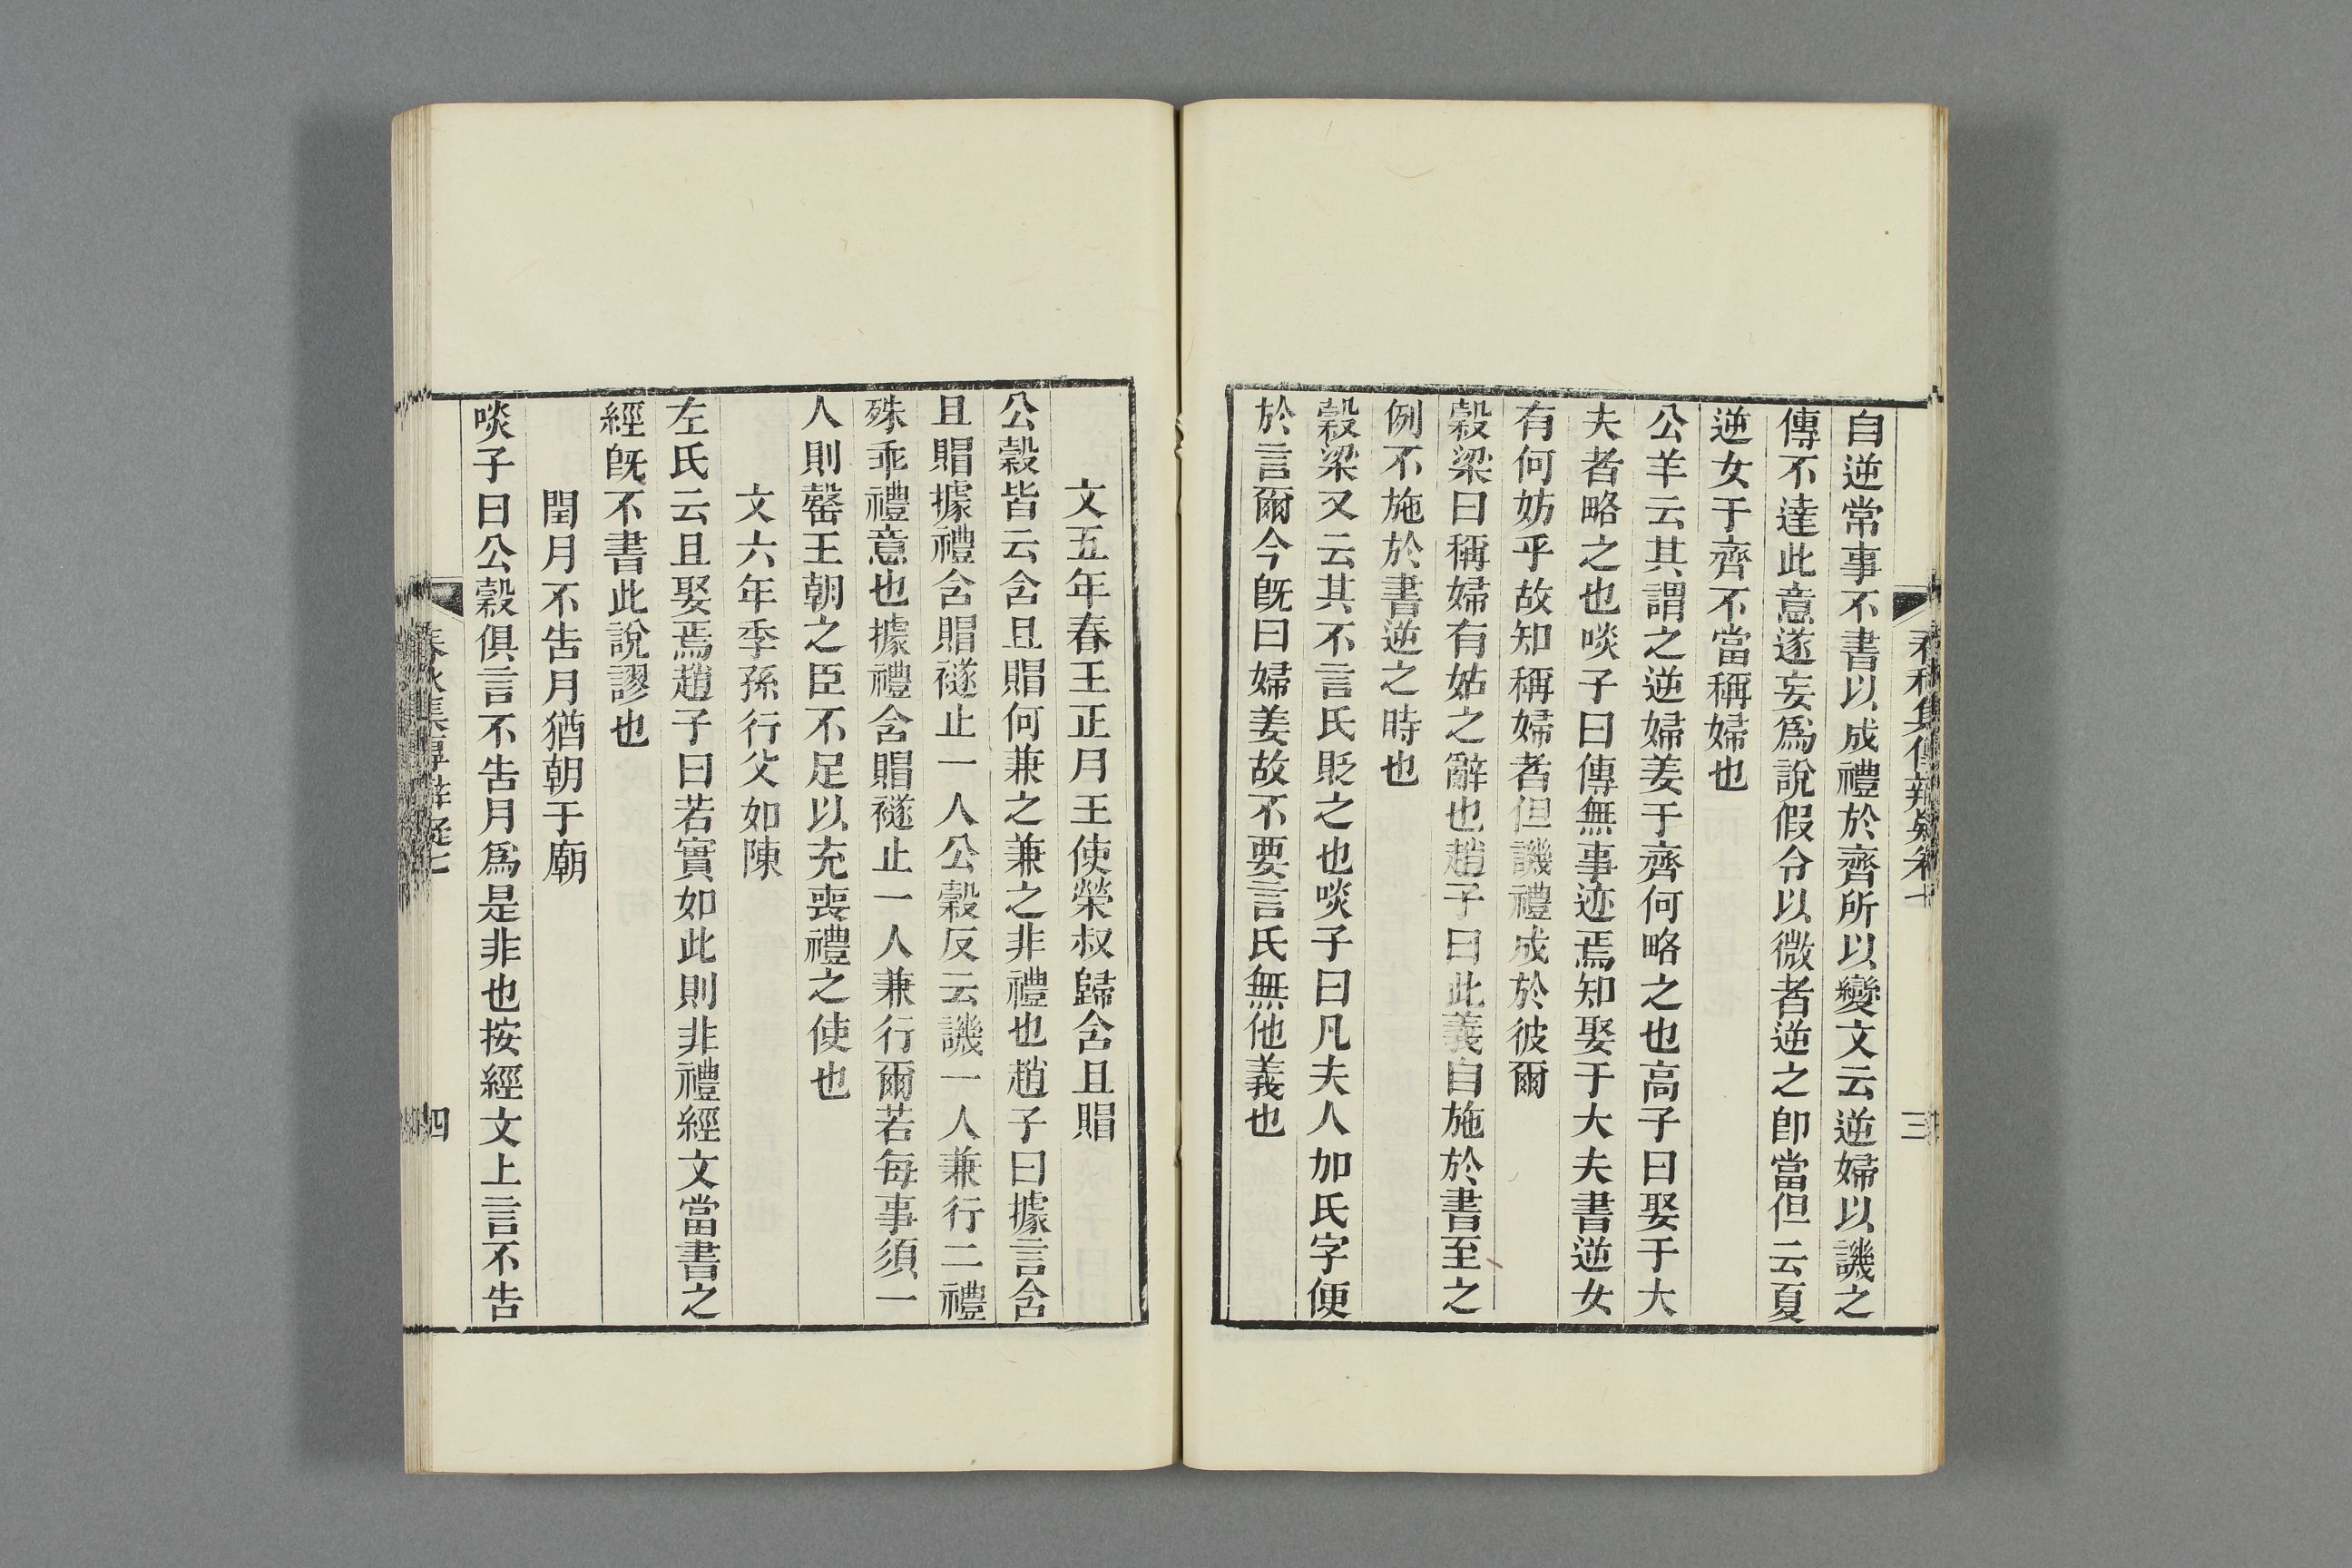 自逆常事不書以成禮於齊所以變文云逆婦以譏之
傳不達此意遂妄爲說假令以微者逆之卽當但云夏
逆女于齊不當稱婦也
公羊云其謂之逆婦姜于齊何略之也高子曰娶于大
夫者略之也啖子曰傳無事迹焉知娶于大夫書逆女
有何妨乎故知稱婦者但譏禮成於彼爾
穀梁曰稱婦有姑之辭也趙子曰此義自施於書至之
例不施於書逆之時也
穀梁又云其不言氏貶之也啖子曰凡夫人加氏字便
於言爾今旣曰婦姜故不要言氏無他義也
春秋集傳辨疑卷七
三
文五年春王正月王使榮叔歸含且賵
公穀皆云含且賵何兼之兼之非禮也趙子曰據言含
且賵據禮含賵襚止一人公穀反云譏一人兼行二禮
殊乖禮意也據禮含賵襚止一人兼行爾若每事須一
人則罄王朝之臣不足以充喪禮之使也
文六年季孫行父如陳
左氏云且娶焉趙子曰若實如此則非禮經文當書之
經旣不書此說謬也
閏月不告月猶朝于廟
啖子曰公穀俱言不告月爲是非也按經文上言不告
春秋集傳辨疑七
四